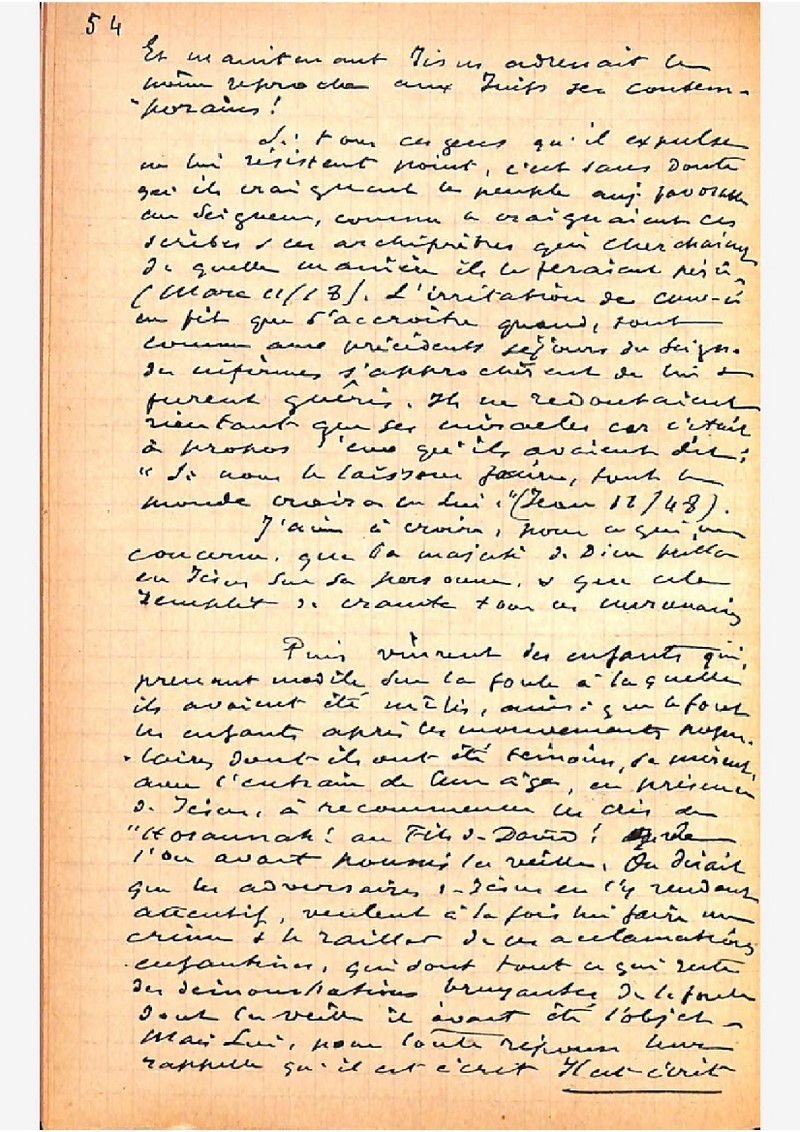 54
Et maintenant Jésus adressait le
même reproche aux Juifs ses contem-
-porains!
Si tous ces gens qu'il expulse
ne lui résistent point, c'est sans doute
qu'ils craignent le peuple auj. favorable
au Seigneur, comme le craignaient ces
scribes & ces archiprêtres qui cherchaient
de quelle manière ils le feraient périr
(Marc 11/18). L'irritation de ceux-ci
ne fit que s'accroître quand, tout
comme aux précédents séjours du Seign.
des infirmes s'approchèrent de lui &
furent guéris. Ils ne redoutaient
rien tant que ses miracles car c'était
à propos d'eux qu'ils avaient dit:
"Si nous le laissons faire, tout le
monde croira en lui." (Jean 11/48).
J'aime à croire, pour ce qui me
concerne, que la majesté de Dieu brilla
en Jésus sur sa personne, & que cela
remplit de crainte tous ces mercenaires
Puis vinrent des enfants qui,
prenant modèle sur la foule à laquelle
ils avaient été mêlés, ainsi que le font
les enfants après les mouvements popu-
-laires dont ils ont été témoins, se mirent,
avec l'entrain de leur âge, en présence
de Jésus, à recommencer les cris de
"Hosannah! au Fils de David!" que
l'on avait poussés la veille. On dirait
que les adversaires de Jésus en l'y rendant
attentif, veulent à la fois lui faire un
crime & le railler de ces acclamations
enfantines, qui sont tout ce qui reste
des démonstrations bruyantes de la foule
dont la veille il avait été l'objet.
Mais Lui, pour toute réponse leur
rappelle qu'il est écrit Il est écrit